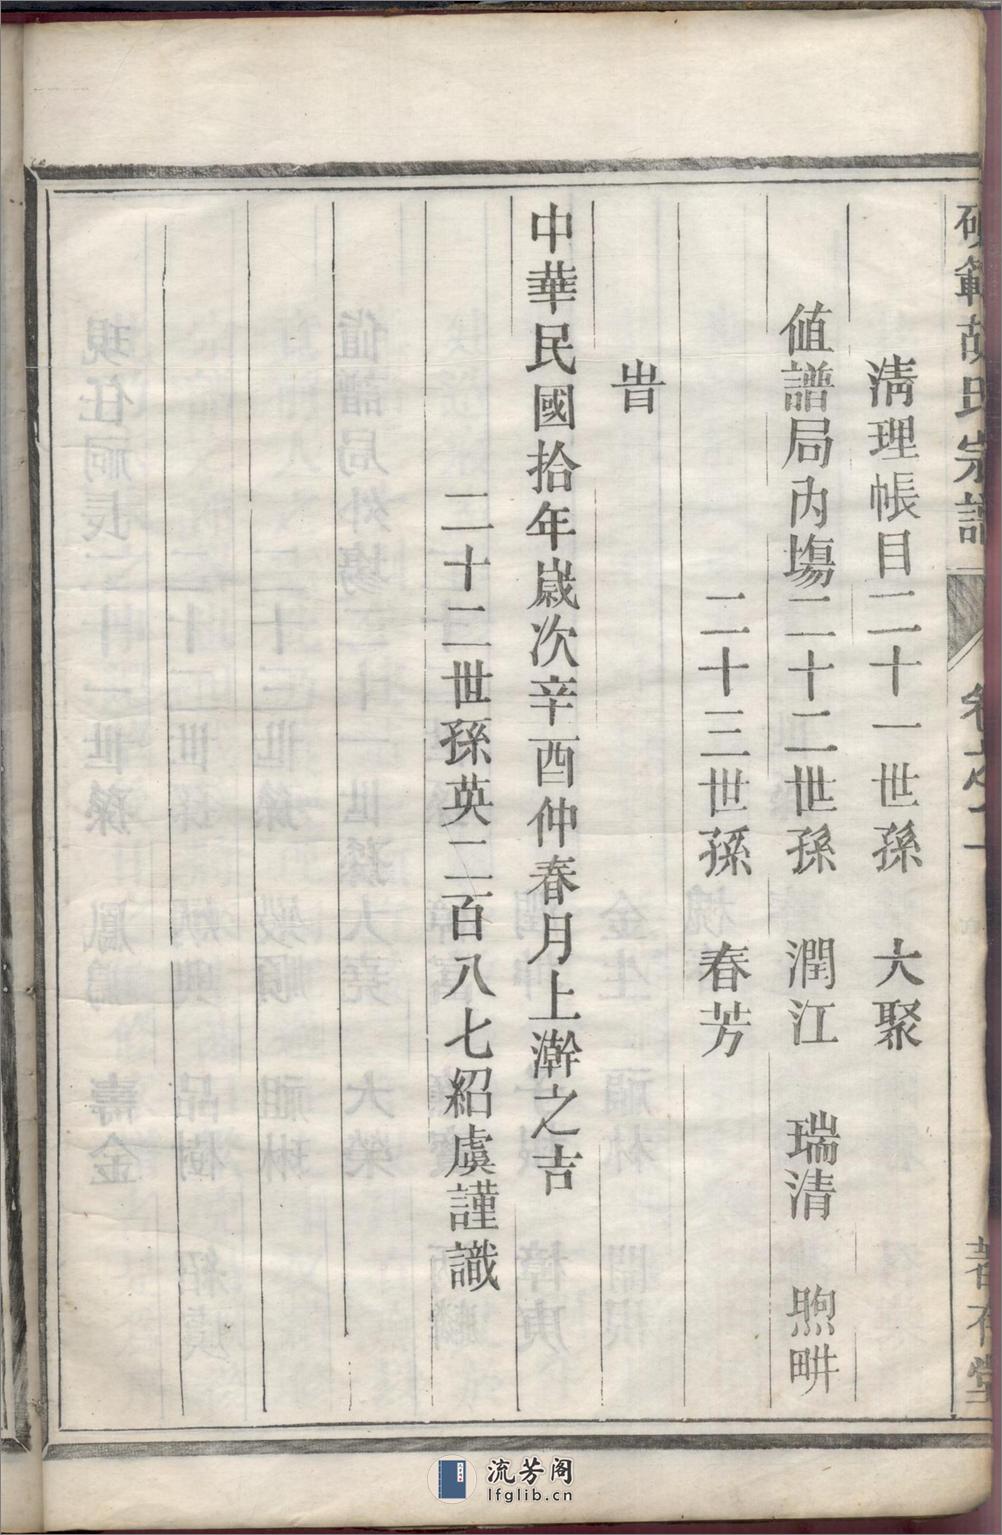 範胡氏宗譜
卷之一
清理帳目二十一世孫 大聚
値譜局內塲二十二世孫 潤江 瑞清 煦畊
二十三世孫 春芳
旹
中華民國拾年嵗次辛酉仲春月上澣之吉
二十二世孫英二百八七紹虞謹識
流芳阁
lfglib.cn